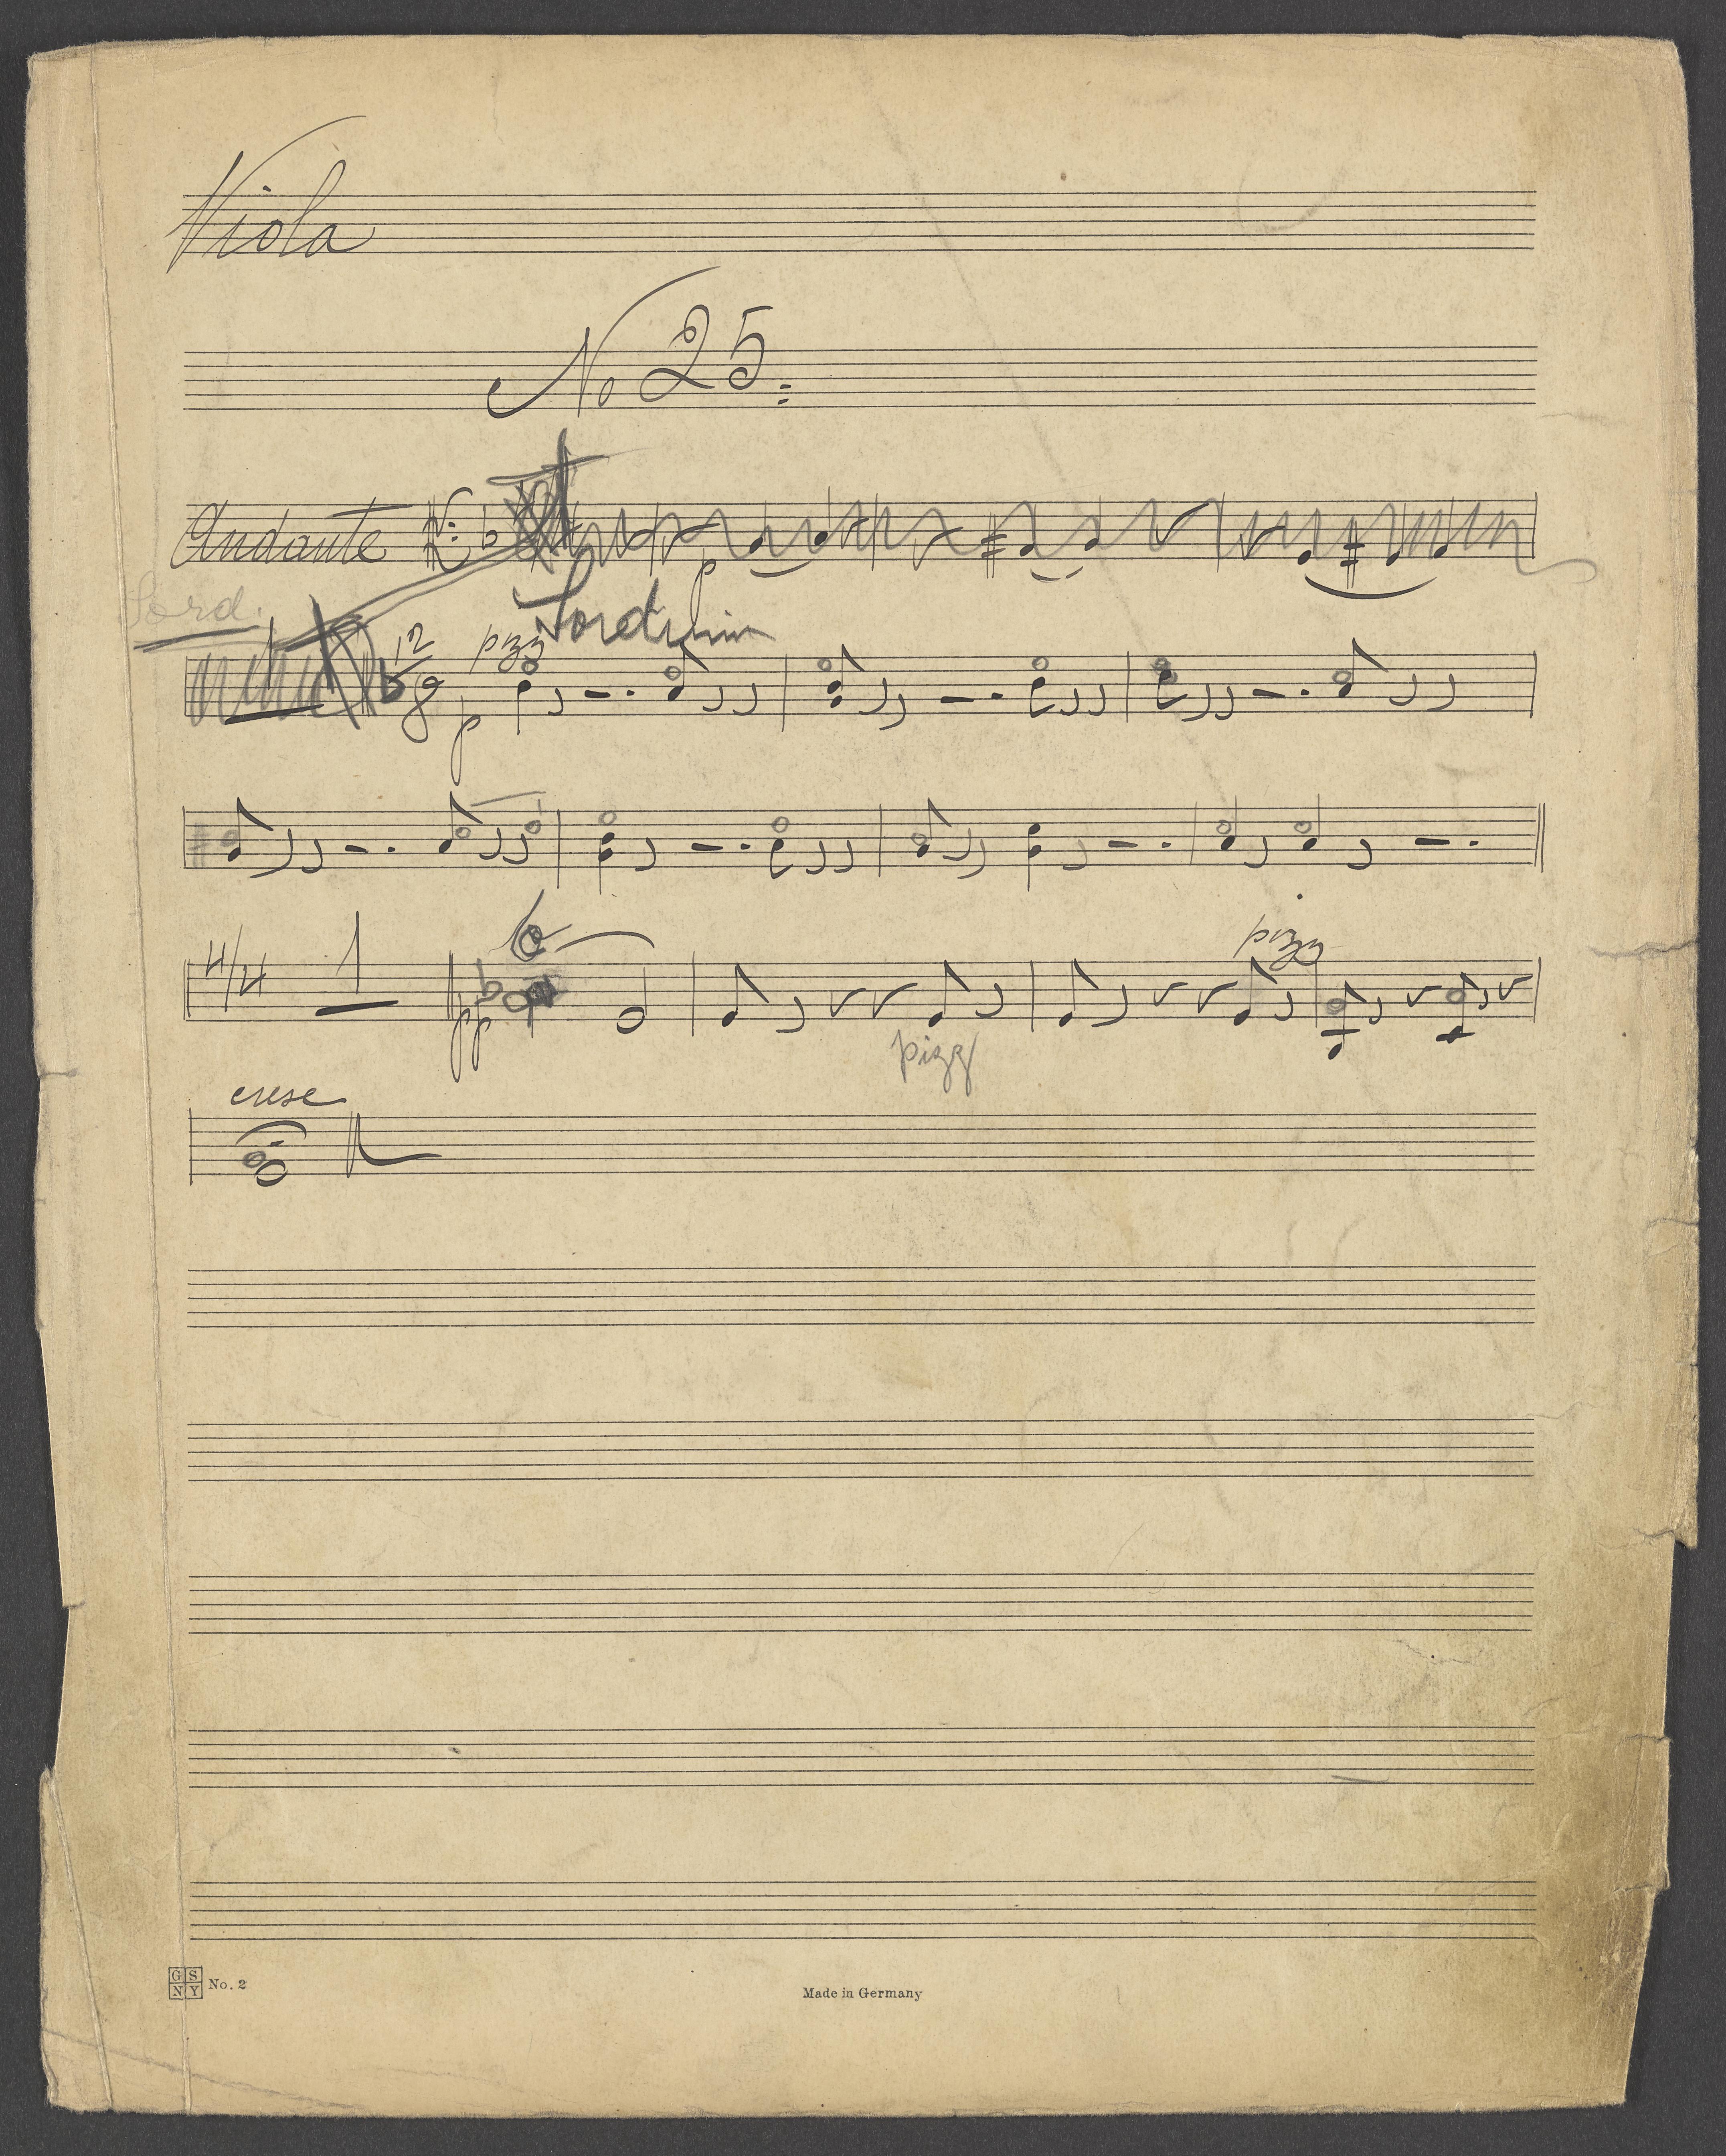 Viola
No 25.
Andante
p
Sord.
Sordino
12
8
pizz
p
4/4
1
pp
pizz
pizz
cresc
G S
N Y
No. 2
Made in Germany